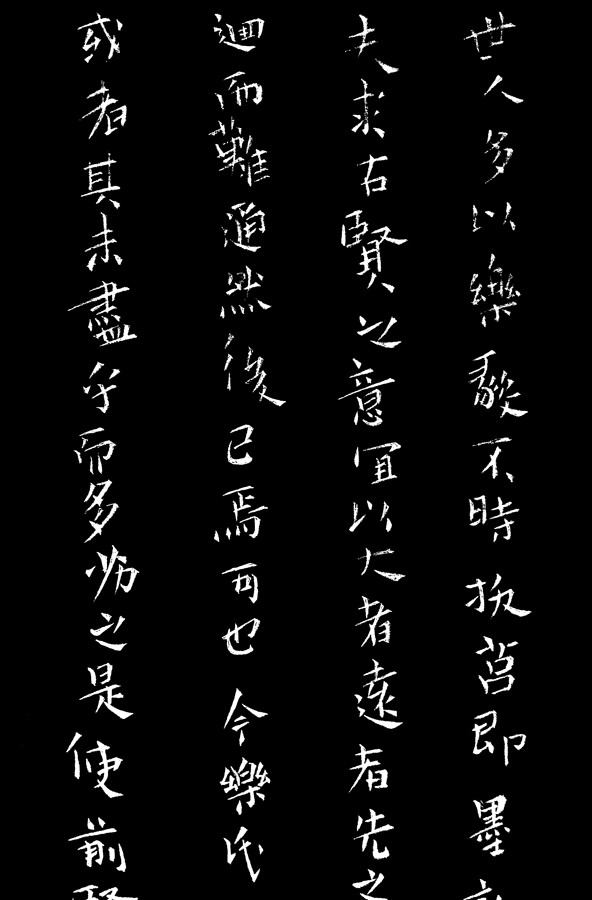 世人多以樂毅不時拔莒即墨
夫求古賢之意宜以大者遠者先之
迴而難通然後已焉可也今樂氏
或者其未盡乎而多劣之是使前